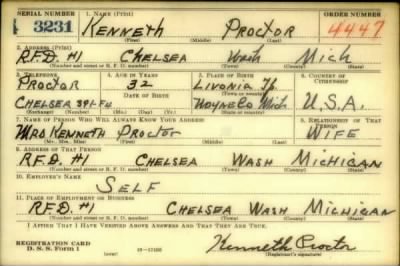 SERIAL NUMBER 1. NAME (Print) ORDER NUMBER
3231 KENNETH PROCTOR 4447
(First) (Middle) (Last)
2. ADDRESS (Print)
R.F.D. #1 CHELSEA Wash Mich
(Number and street or R. F. D. number) (Town) (County) (State)
3. TELEPHONE 4. AGE IN YEARS 5. PLACE OF BIRTH 6. COUNTRY OF CITIZENSHIP
PROCTOR 32 LIVONIA
DATE OF BIRTH (Town or county)
CHELSEA 391-F4 Mich U.S.A.
(Exchange) (Number) (Mo.) (Day) (Yr.) (State or country)
7. NAME OF PERSON WHO WILL ALWAYS KNOW YOUR ADDRESS 8. RELATIONSHIP OF THAT PERSON
MRS KENNETH PROCTOR WIFE
(Mr., Mrs., Miss) (First) (Middle) (Last)
9. ADDRESS OF THAT PERSON
R.F.D. #1 CHELSEA WASH MICHIGAN
(Number and street or R. F. D. number) (Town) (County) (State)
10. EMPLOYER'S NAME
SELF
11. PLACE OF EMPLOYMENT OR BUSINESS
R.F.D. #1 CHELSEA WASH MICHIGAN
(Number and street or R. F. D. number) (Town) (County) (State)
I AFFIRM THAT I HAVE VERIFIED ABOVE ANSWERS AND THAT THEY ARE TRUE.
REGISTRATION CARD
D. S. S. Form 1 Kenneth Proctor
(Registrant's signature)